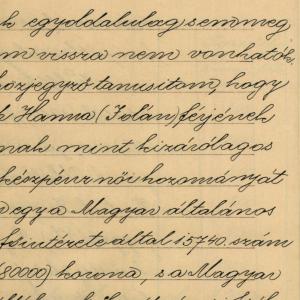 k egyoldalulag sem meg
m vissza nem vonhatók.
közjegyző tanusitom, hogy
k Hanna (Jolán) férjének
nak mint kizárólagos
készpénz női hozományát
egy a Magyar általános
által 15740. szám
(80000) korona, s a Magyar